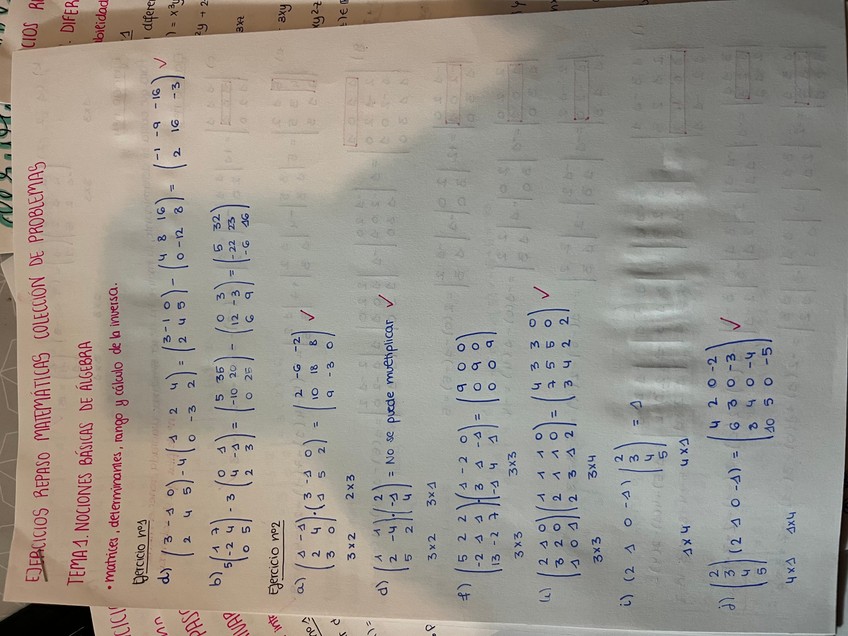 EJERCICIOS REPASO MATEMÁTICAS COLECCIÓN DE PROBLEMAS
TEMA 1. NOCIONES BÁSICAS DE ÁLGEBRA
• matrices, determinantes, rango y cálculo de la inversa.
Ejercicio nº1
a) (3 -1 0; 2 4 5) - 4 (1 2 4; 0 -3 2) = (3 -1 0; 2 4 5) - (4 8 16; 0 -12 8) = (-1 -9 -16; 2 16 -3) ✓
b) 5 (1 7; -2 4; 0 5) - 3 (0 1; 4 -1; 2 3) = (5 35; -10 20; 0 25) - (0 3; 12 -3; 6 9) = (5 32; -22 23; -6 16)
Ejercicio nº2
a) (1 -1; 2 4; 3 0) · (3 -1 0; 1 5 2) = (2 -6 -2; 10 18 8; 9 -3 0) ✓
3x2 2x3
d) (1 1; 2 -4; 5 2) · (2; -1; 4) = No se puede multiplicar ✓
3x2 3x1
f) (5 2 2; -2 -1 1; 13 -2 7) · (1 -2 0; 3 1 -1; -1 4 1) = (9 0 0; 0 9 0; 0 0 9)
3x3 3x3
h) (2 1 0; 3 2 0; 1 0 1) (1 1 1 0; 2 1 1 0; 2 3 1 2) = (4 3 3 0; 7 5 5 0; 3 4 2 2) ✓
3x3 3x4
i) (2 1 0 -1) (2; 3; 4; 5) = 1
1x4 4x1
j) (2; 3; 4; 5) (2 1 0 -1) = (4 2 0 -2; 6 3 0 -3; 8 4 0 -4; 10 5 0 -5) ✓
4x1 1x4